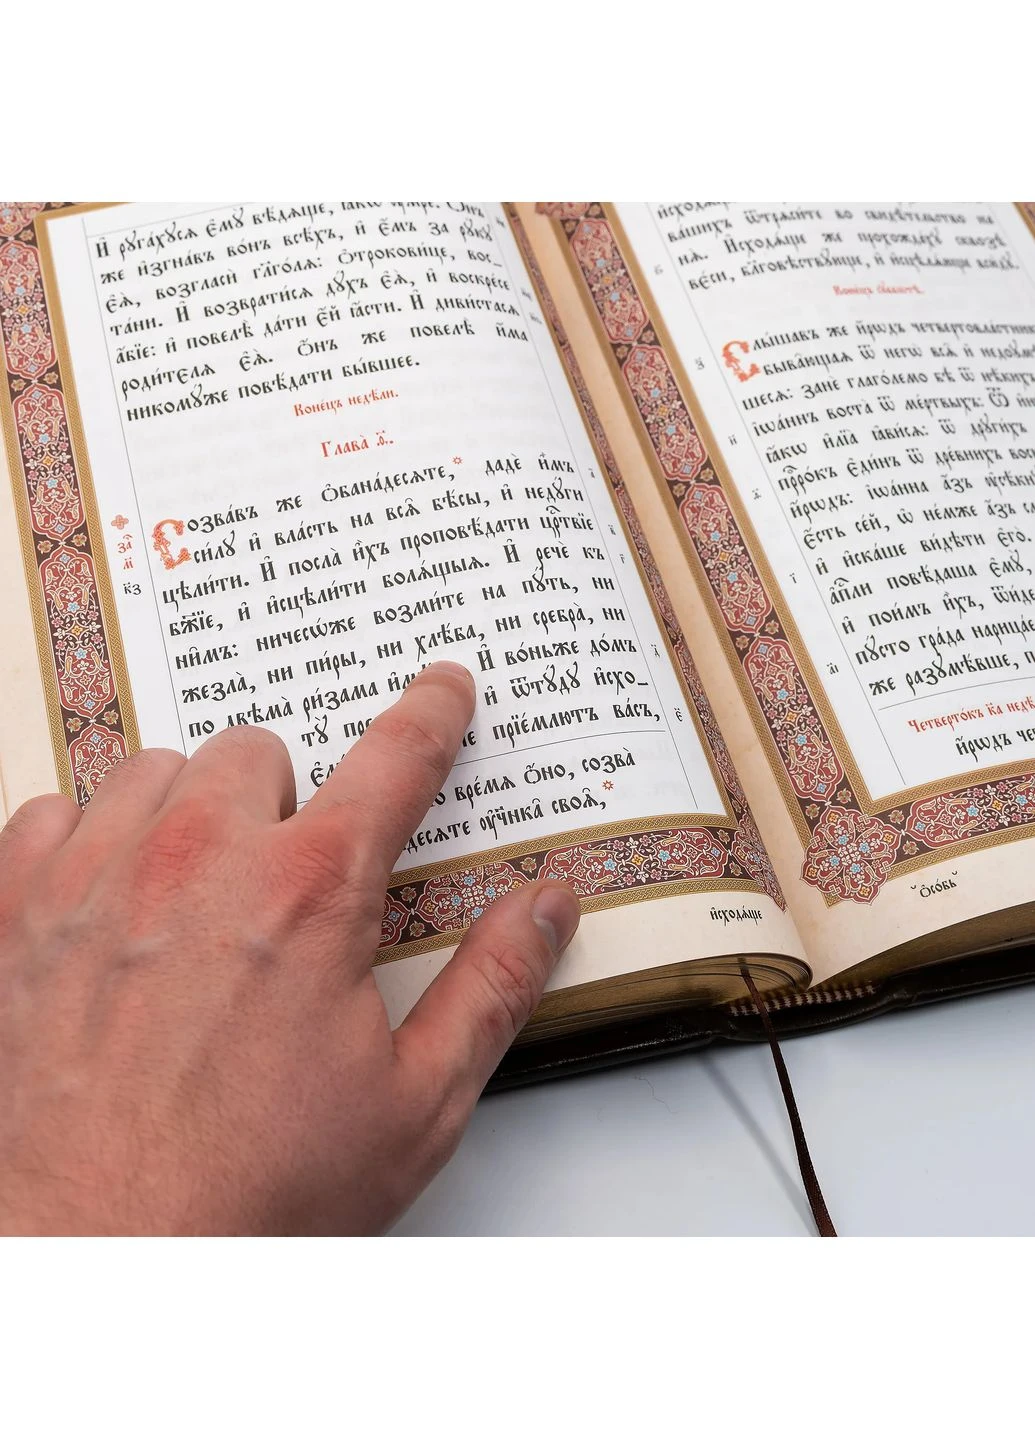 И҆ рꙋга́хꙋсѧ є҆мꙋ̀ вѣ́дѧще,
же и҆згна́въ во́нъ всѣ́хъ, и҆ є҆́мъ за рꙋ́кꙋ
є҆ѧ̀, возгласѝ гл҃го́лѧ: ѻ҆трокови́це, вос_
та́ни. И҆ возврати́сѧ дꙋ́хъ є҆ѧ̀, и҆ воскре́се
а҆́бїе: и҆ повелѣ̀ да́ти є҆́й ꙗ҆́сти. И҆ диви́стасѧ
роди́телѧ є҆ѧ̀. Ѻ҆́нъ же повелѣ̀ и҆́ма
никомꙋ́же повѣ́дати бы́вшее.
Коне́цъ недѣ́ли.
Глава̀ ѳ҃.
Созва́въ же ѻ҆бана́десѧте,* дадѐ и҆̀мъ
си́лꙋ и҆ вла́сть на всѧ̑ бѣ́сы, и҆ недꙋ́ги
цѣли́ти. И҆ посла̀ и҆̀хъ проповѣ́дати црⷭ҇твїе
бж҃їе, и҆ и҆сцѣли́ти болѧ́щыѧ. И҆ речѐ къ
ни̑мъ: ничесѡ́же возми́те на пꙋ́ть, ни
жезла̀, ни пи́ры, ни хлѣ́ба, ни сребра̀, ни
по двѣма̀ ри́зама
И҆ во́ньже до́мъ
и҆ ѿтꙋ́дꙋ и҆схо_
прїе́млютъ ва́съ,
вре́мѧ ѻ҆́но, созва̀
ᲂу҆чн҃ка̑ своѧ̑,*
и҆сходѧ́ще
за҄
м҃
к҃з
ва́шихъ ѿтрѧси́те во свидѣ́тельство на
нѧ̀. И҆сходѧ́ще же прохожда́хꙋ сквозѣ̀
вє́си, бл҃говѣствꙋ́юще, и҆ и҆сцѣлѧ́юще всю́дꙋ.
Слы́шавъ же и҆́рѡдъ
быва̑ющаѧ ѿ негѡ̀ всѧ̑ и҆
шесѧ: занѐ глаго́лемо бѣ̀ ѿ нѣ́кихъ
і҆ѡа́ннъ воста̀ ѿ ме́ртвыхъ: Ѿ
ꙗ҆́кѡ и҆лїа̀ ꙗ҆ви́сѧ: ѿ дрꙋги́хъ
прⷪ҇ро́къ є҆ди́нъ ѿ дре́внихъ
и҆́рѡдъ: і҆ѡа́нна а҆́зъ
є҆́сть се́й, ѡ҆ не́мже а҆́зъ
и҆ и҆ска́ше ви́дѣти є҆го̀.
а҆пⷭ҇ли повѣ́даша є҆мꙋ̀,
и҆ пои́мъ и҆̀хъ,
пꙋ́сто гра́да
же разꙋмѣ́вше,
Четверто́къ к҃а
и҆́рѡдъ
Ѻ҆со́бь